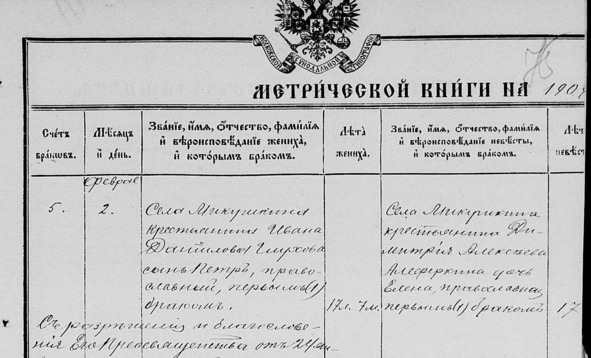 МОСКОВСКОЙ СѴНОДАЛЬНОЙ ТИПОГРАФІИ
МЕТРИЧЕСКОЙ КНИГИ НА 190
Счетъ браковъ.
Мѣсяцъ и день.
Званіе, имя, отчество, фамилія и вѣроисповѣданіе жениха, и которымъ бракомъ.
Лѣта жениха.
Званіе, имя, отчество, фамилія и вѣроисповѣданіе невѣсты, и которымъ бракомъ.
Лѣт невѣс
5.
2.
Села Микушкина
крестьянина Ивана
Данилова Глухова
сынъ Петръ, право-
славный, первымъ (1)
бракомъ.
17 л. 7 м.
Села Микушкина
крестьянина Ди-
митрія Алексѣева
дочь
Елена, православная,
первымъ (1) бракомъ
17
Съ разрѣшенія и благосло-
венія Его Преосвященства отъ 24